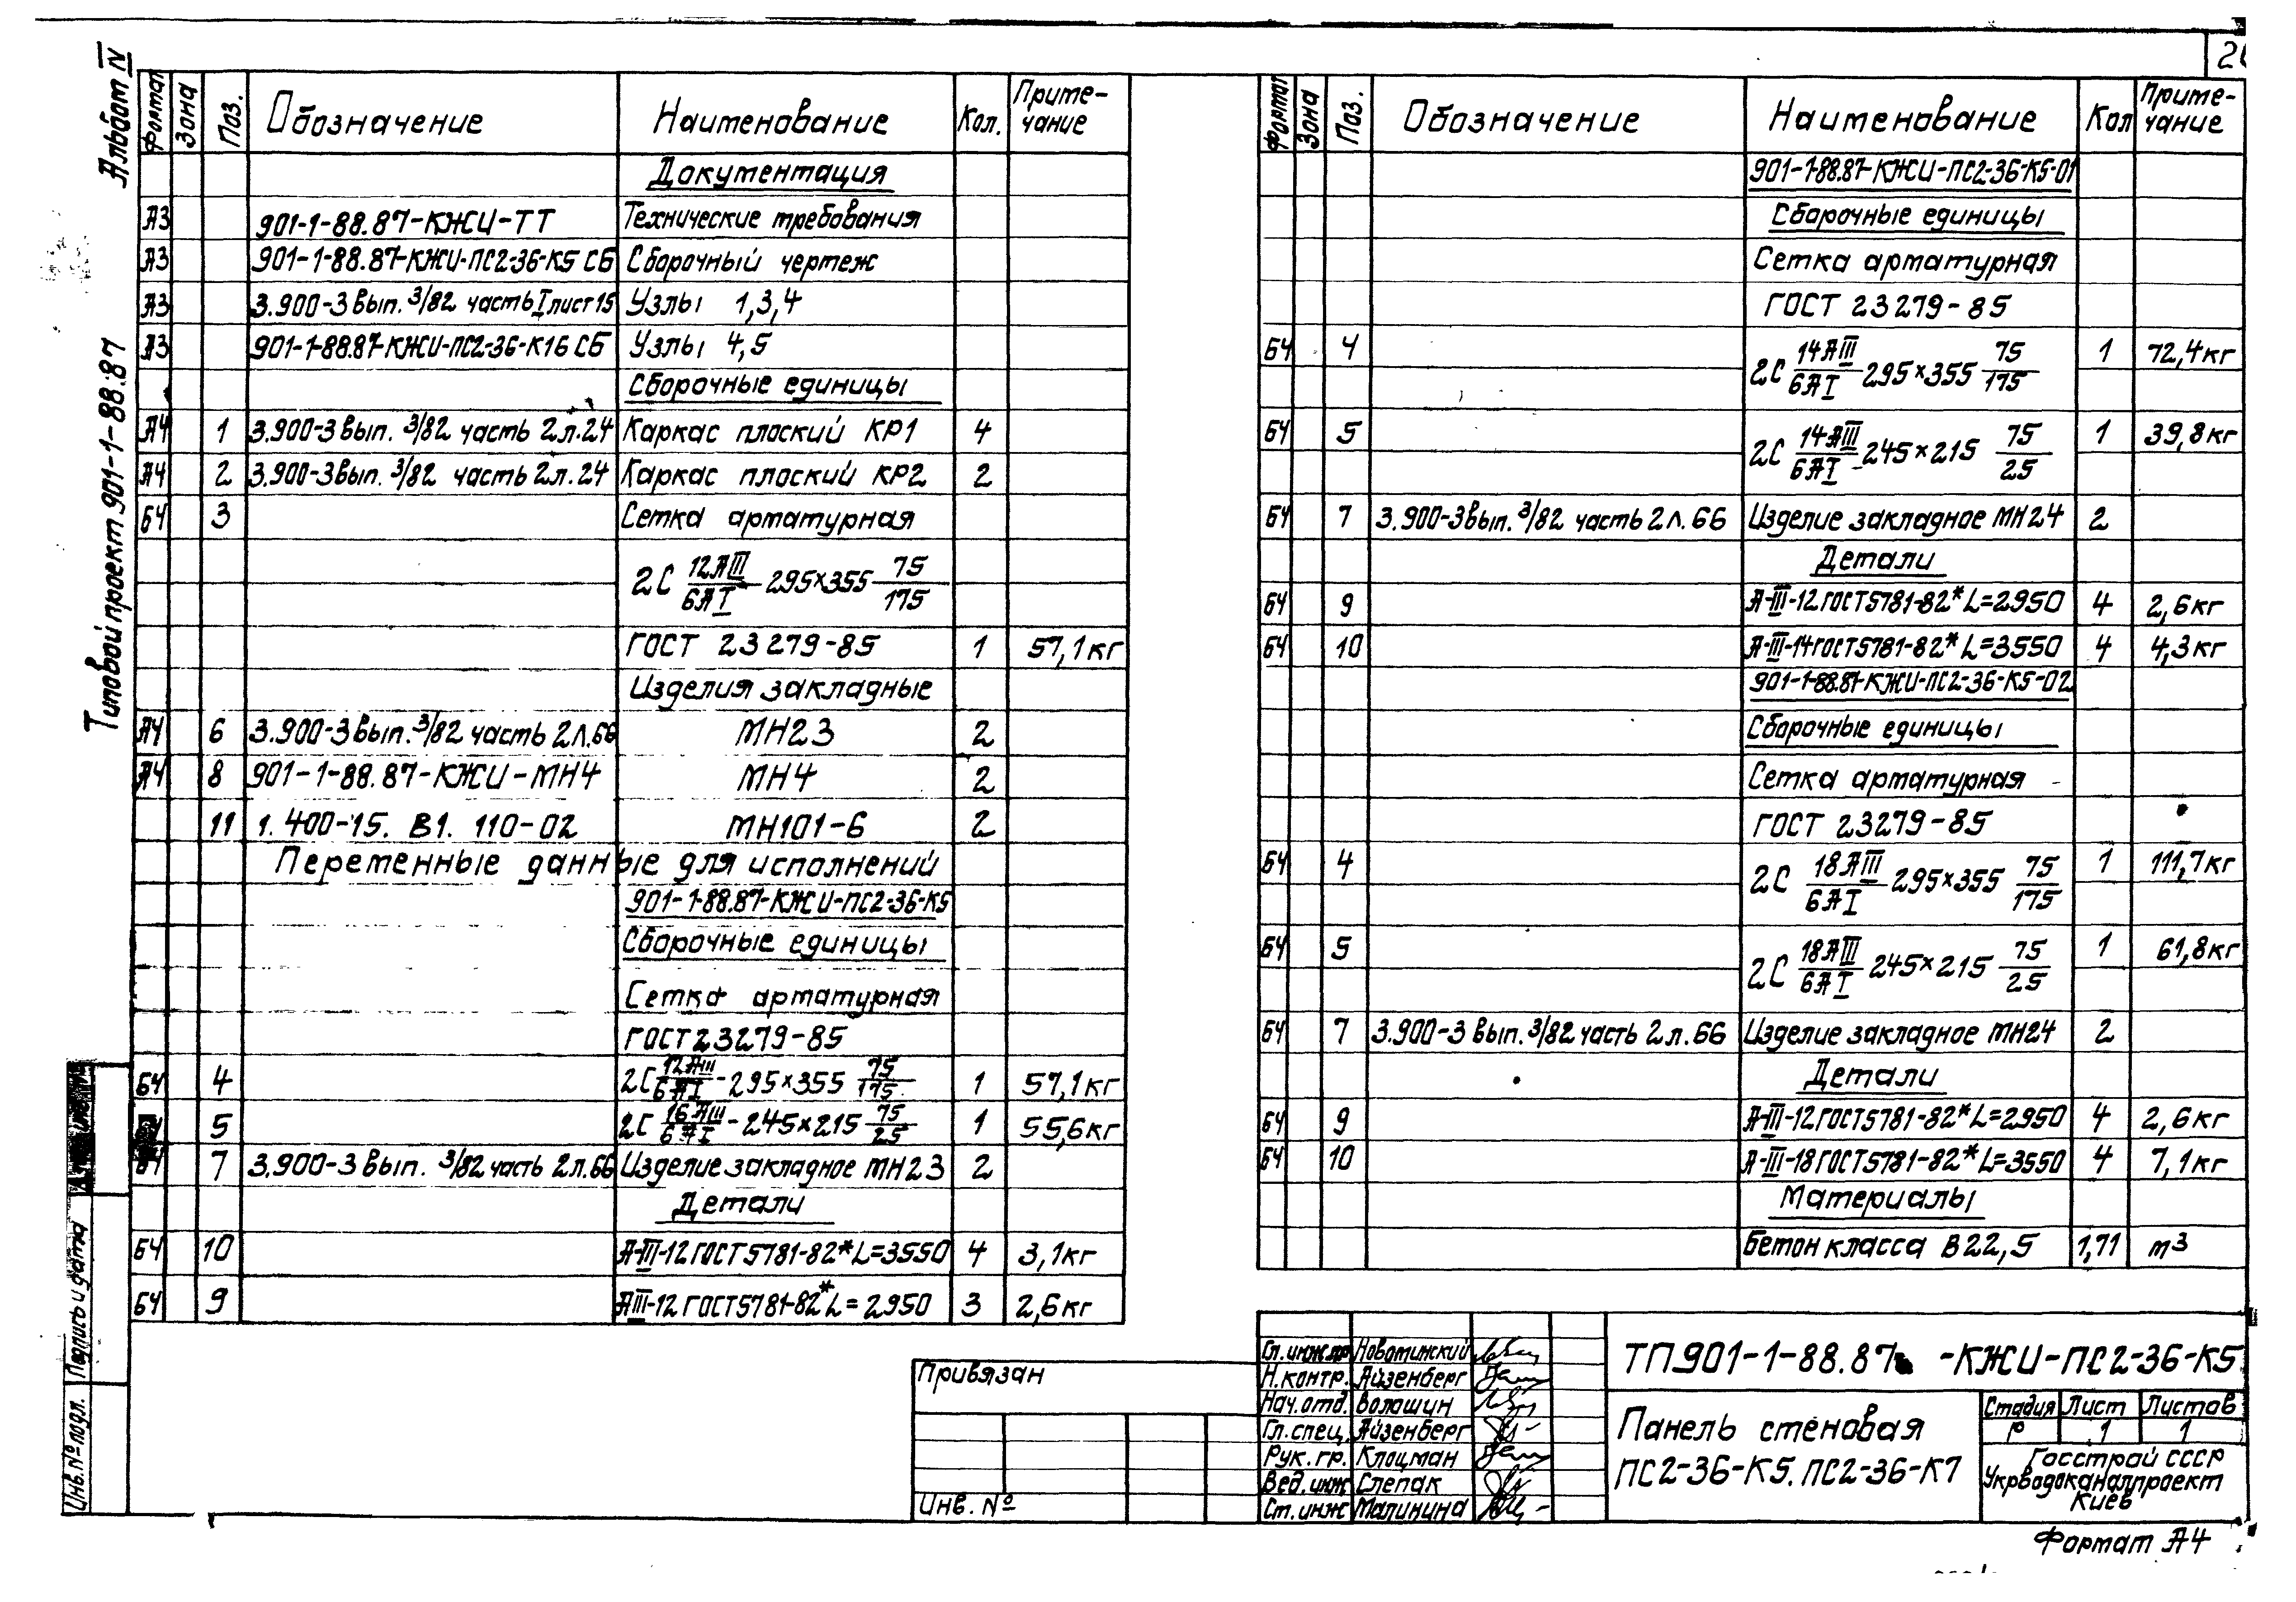 Альбом IV
Типовой проект 901-1-88.87
Формат Зона Поз. Обозначение Наименование Кол. Приме-чание
Документация
А3 901-1-88.87-КЖИ-ТТ Технические требования
А3 901-1-88.87-КЖИ-ПС2-36-К5 СБ Сборочный чертеж
А3 3.900-3 вып. 3/82 часть I лист 15 Узлы 1,3,4
А3 901-1-88.87-КЖИ-ПС2-36-К16 СБ Узлы 4,5
Сборочные единицы
А4 1 3.900-3 вып. 3/82 часть 2 л.24 Каркас плоский КР1 4
А4 2 3.900-3 вып. 3/82 часть 2 л.24 Каркас плоский КР2 2
БЧ 3 Сетка арматурная
2С 12АIII/6АI - 295×355 75/175
ГОСТ 23279-85 1 57,1кг
Изделия закладные
А4 6 3.900-3 вып. 3/82 часть 2 л.66 МН23 2
А4 8 901-1-88.87-КЖИ-МН4 МН4 2
11 1.400-15. В1. 110-02 МН101-6 2
Переменные данные для исполнений
901-1-88.87-КЖИ-ПС2-36-К5
Сборочные единицы
Сетка арматурная
ГОСТ 23279-85
БЧ 4 2С 12АIII/6АI - 295×355 75/175 1 57,1кг
5 2С 16АIII/6АI - 245×215 75/25 1 55,6кг
7 3.900-3 вып. 3/82 часть 2 л.66 Изделие закладное МН23 2
Детали
БЧ 10 А-III-12 ГОСТ 5781-82* L=3550 4 3,1кг
БЧ 9 АIII-12 ГОСТ 5781-82* L=2950 3 2,6кг
Формат Зона Поз. Обозначение Наименование Кол Приме-чание
901-1-88.87-КЖИ-ПС2-36-К5-01
Сборочные единицы
Сетка арматурная
ГОСТ 23279-85
БЧ 4 2С 14АIII/6АI 295×355 75/175 1 72,4кг
БЧ 5 2С 14АIII/6АI - 245×215 75/25 1 39,8кг
БЧ 7 3.900-3 вып. 3/82 часть 2 л. 66 Изделие закладное МН24 2
Детали
БЧ 9 А-III-12 ГОСТ 5781-82* L=2950 4 2,6кг
БЧ 10 А-III-14 ГОСТ 5781-82* L=3550 4 4,3кг
901-1-88.87-КЖИ-ПС2-36-К5-02
Сборочные единицы
Сетка арматурная
ГОСТ 23279-85
БЧ 4 2С 18АIII/6АI - 295×355 75/175 1 111,7кг
БЧ 5 2С 18АIII/6АI 245×215 75/25 1 61,8кг
БЧ 7 3.900-3 вып. 3/82 часть 2 л. 66 Изделие закладное МН24 2
Детали
БЧ 9 А-III-12 ГОСТ 5781-82* L=2950 4 2,6кг
БЧ 10 А-III-18 ГОСТ 5781-82* L=3550 4 7,1кг
Материалы
Бетон класса В22,5 1,71 м3
Подпись и дата
Инв. № подл.
Привязан
Инв. №
Гл. инж. пр Новоминский
Н. контр. Айзенберг
Нач. отд. Волошин
Гл. спец. Айзенберг
Рук. гр. Клоцман
Вед. инж Слепак
Ст. инж Малинина
ТП901-1-88.87 -КЖИ-ПС2-36-К5
Панель стеновая
ПС2-36-К5. ПС2-36-К7
Стадия Лист Листов
Р 1 1
Госстрой СССР
Укрводоканалпроект
Киев
Формат А4